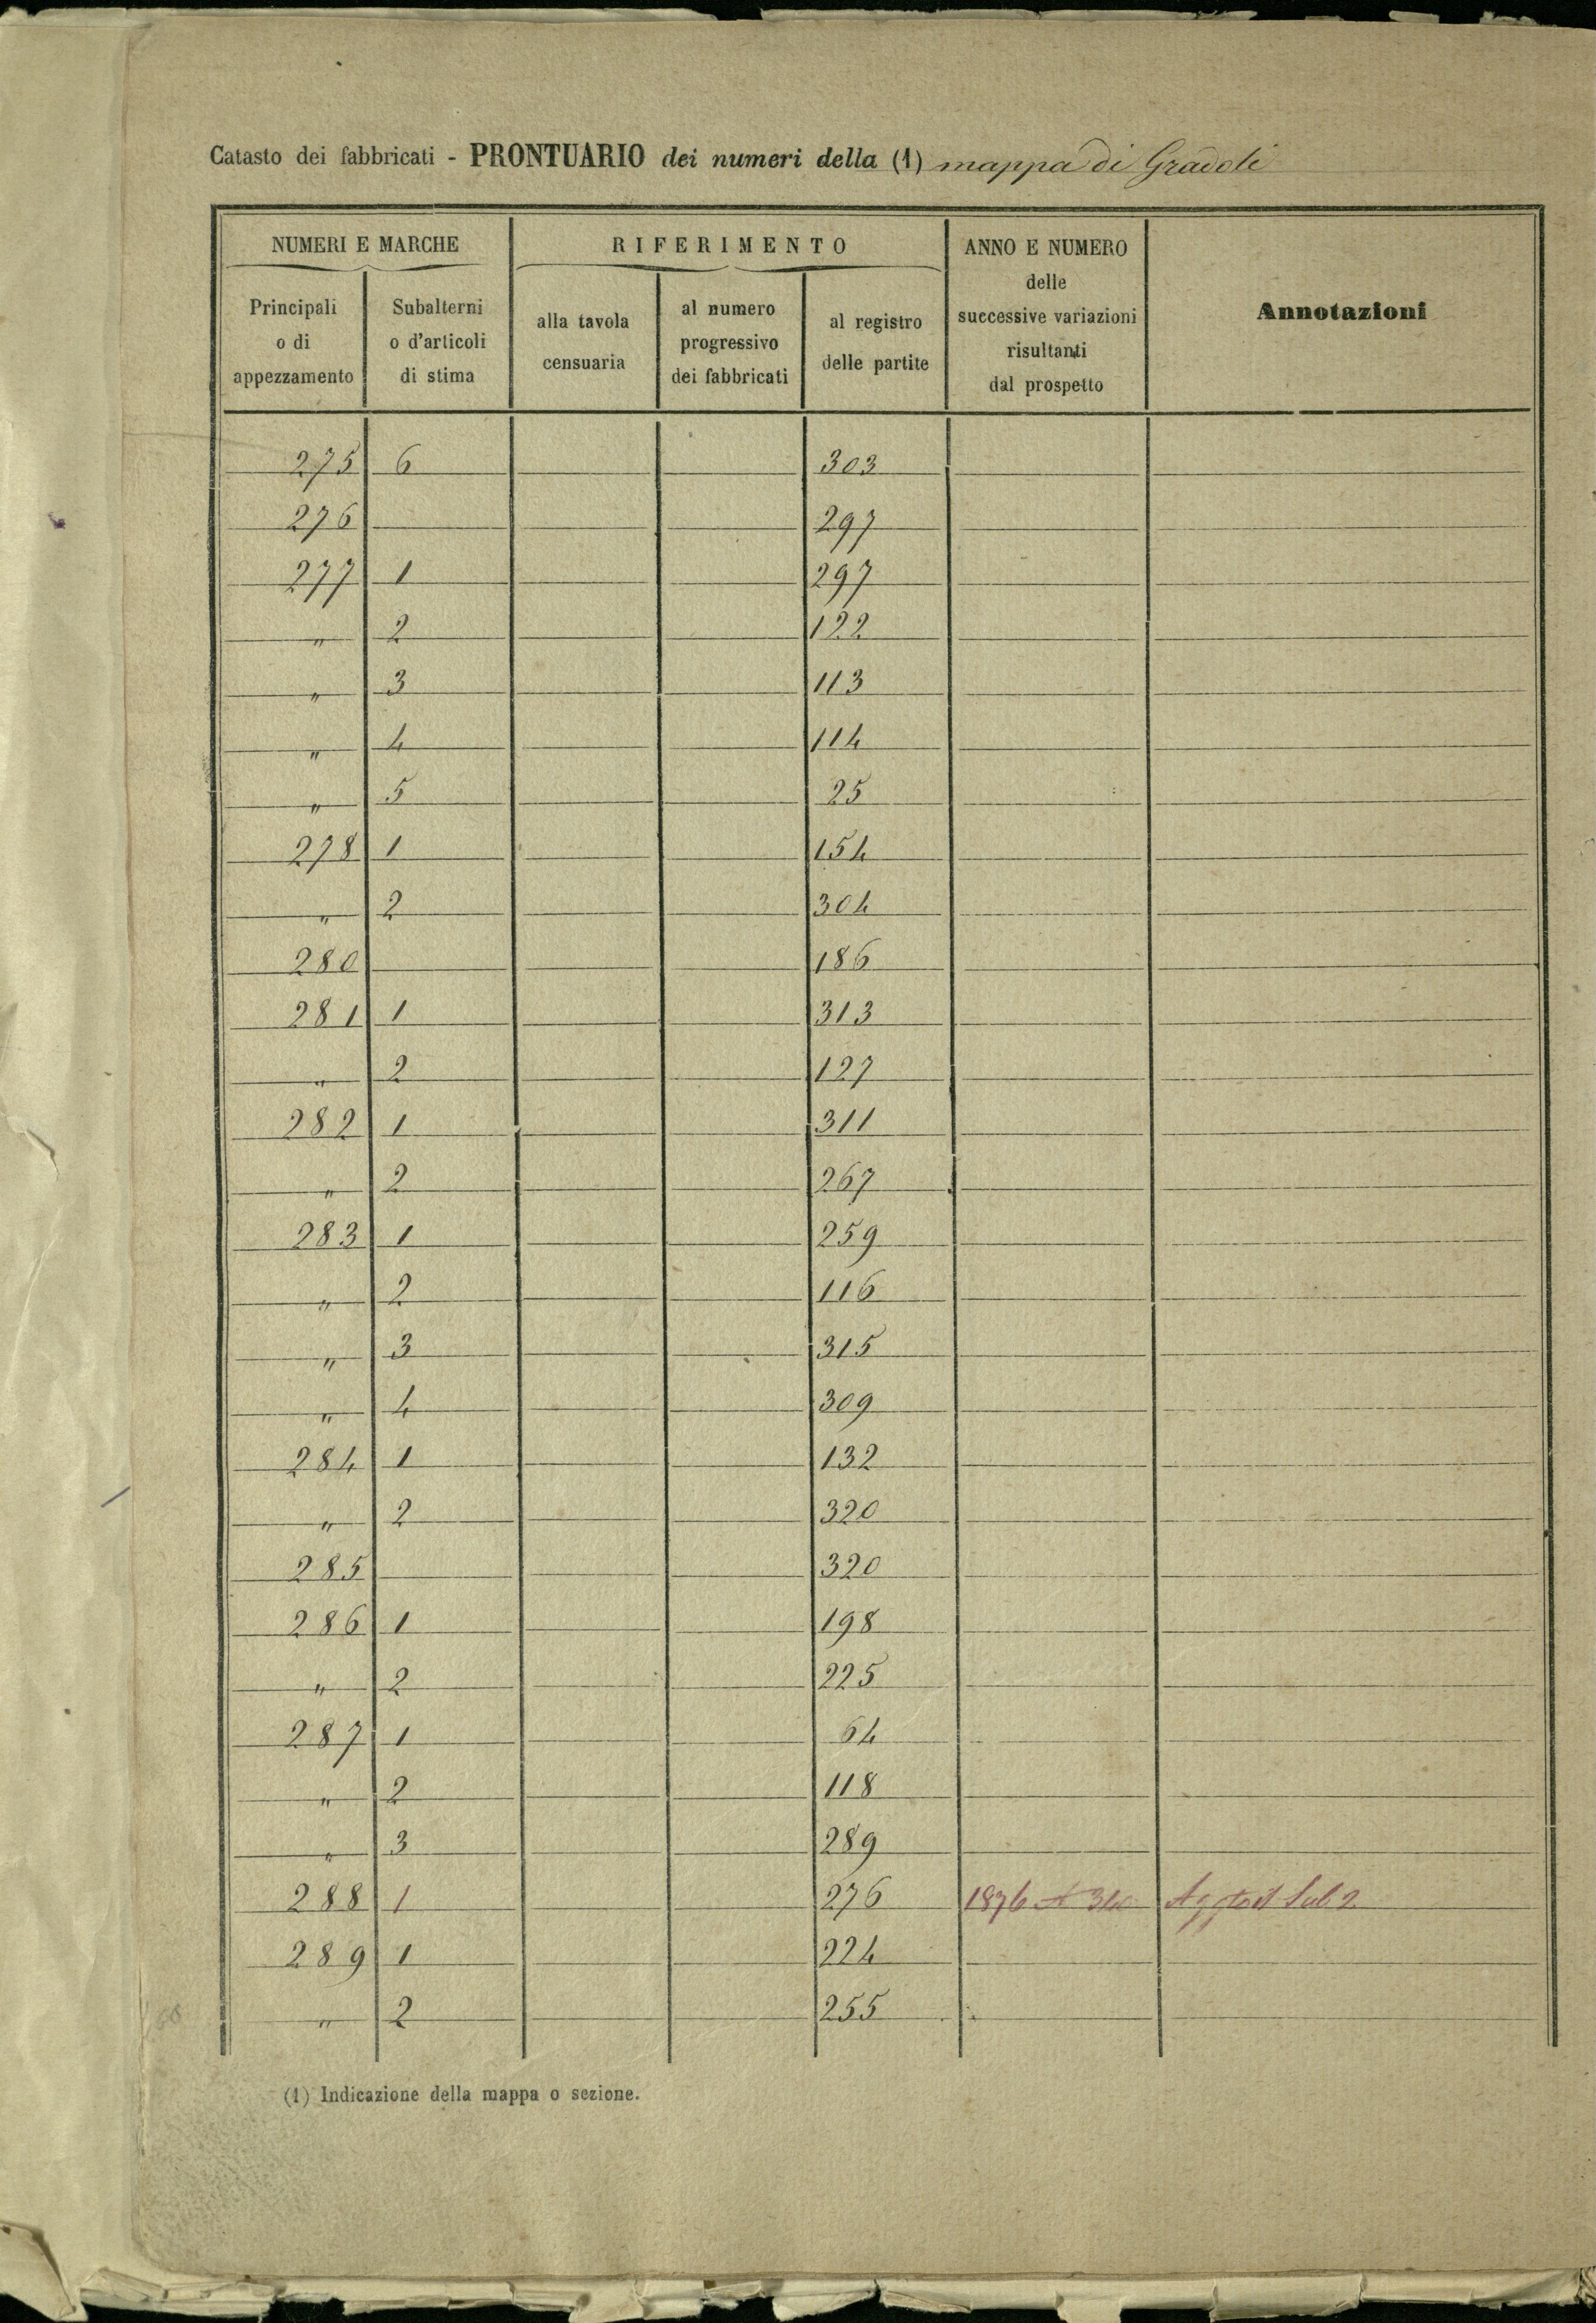 Catasto dei fabbricati - PRONTUARIO dei numeri della (1) mappa di Gradoli
NUMERI E MARCHE
RIFERIMENTO
ANNO E NUMERO
delle
successive variazioni
risultanti
dal prospetto
Annotazioni
Principali
o di
appezzamento
Subalterni
o d'articoli
di stima
alla tavola
censuaria
al numero
progressivo
dei fabbricati
al registro
delle partite
275 6 303
276 297
277 1 297
" 2 122
" 3 113
" 4 114
" 5 25
278 1 154
" 2 304
280 186
281 1 313
" 2 127
282 1 311
" 2 267
283 1 259
" 2 116
" 3 315
" 4 309
284 1 132
" 2 320
285 320
286 1 198
" 2 225
287 1 64
" 2 118
" 3 289
288 1 276 1876 Sub. 2
289 1 224
" 2 255
(1) Indicazione della mappa o sezione.